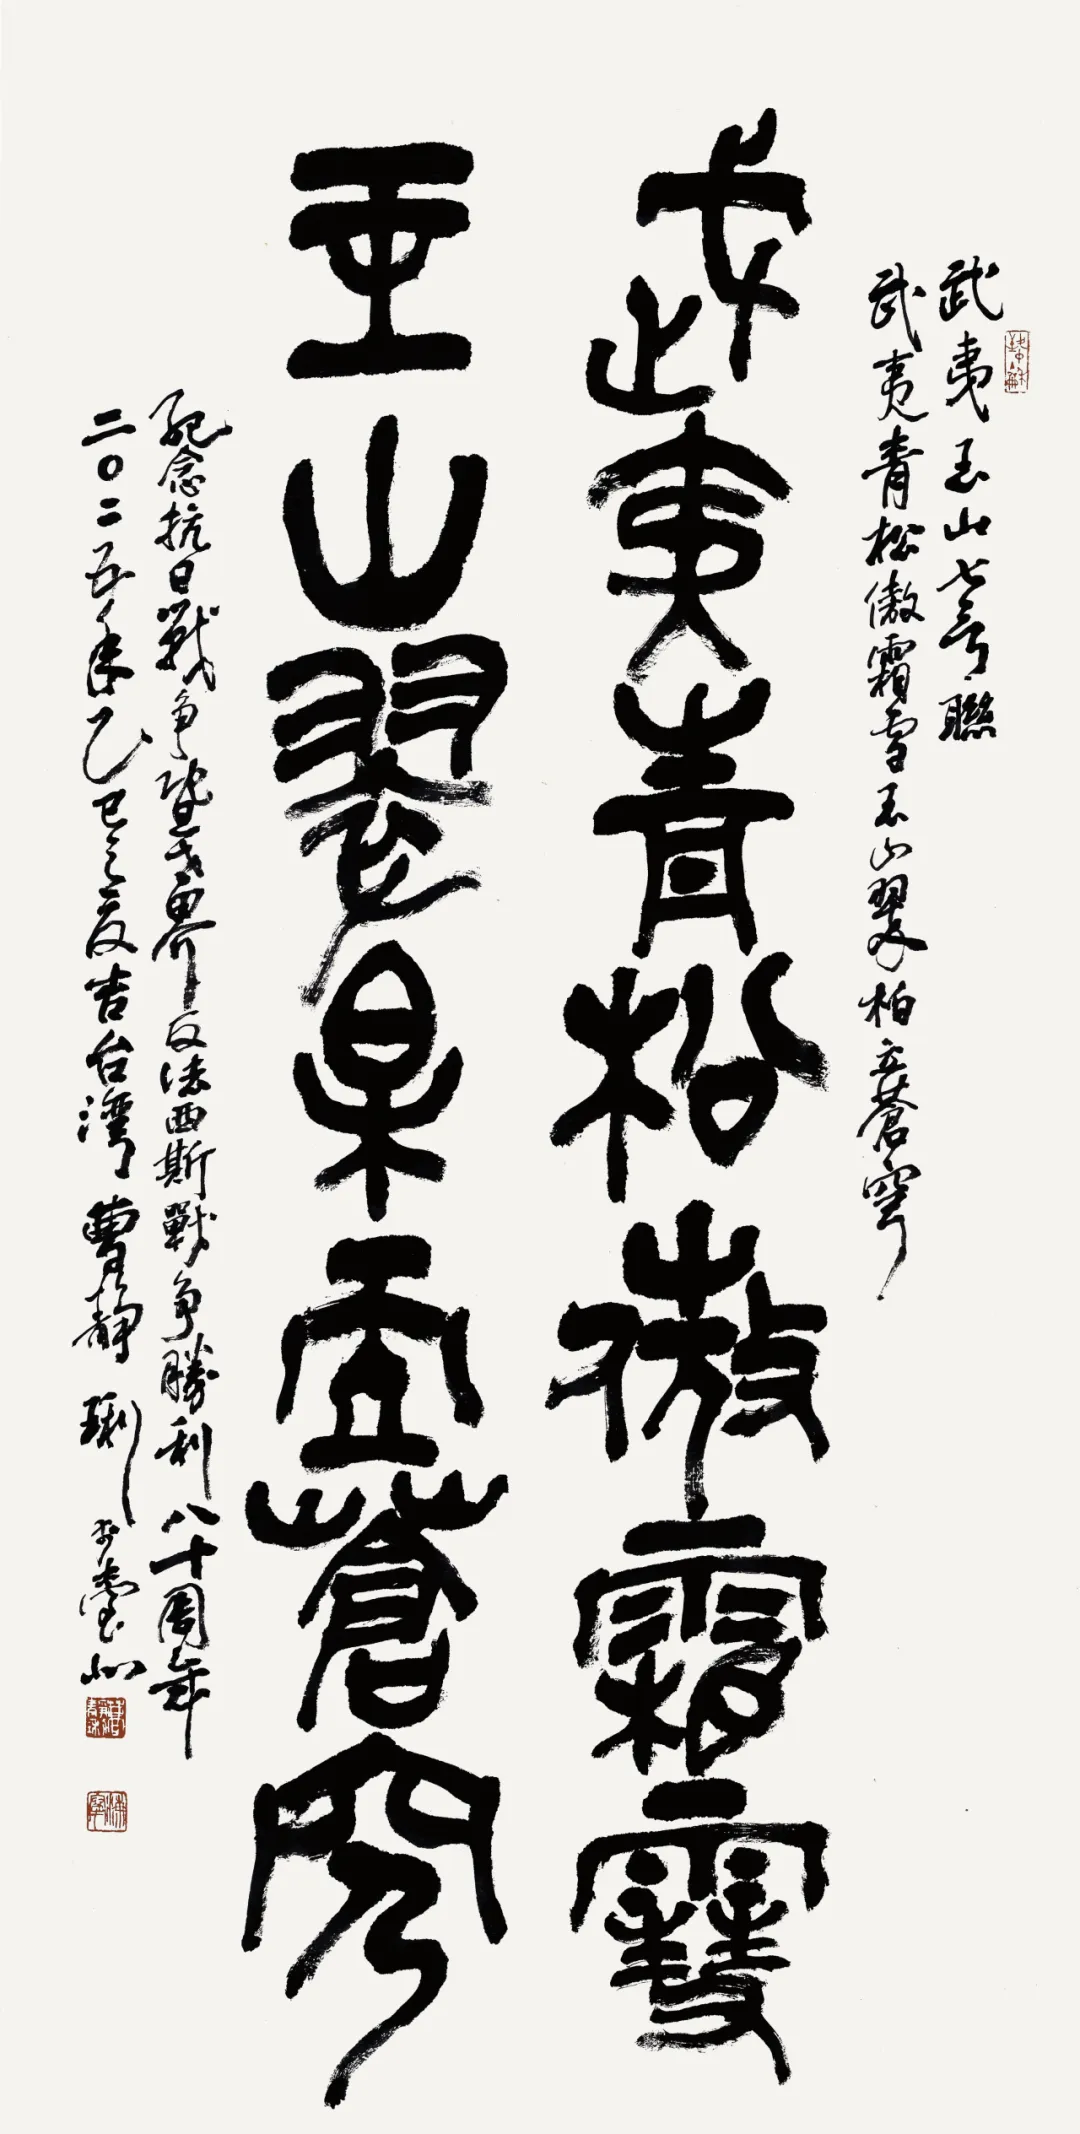 武夷玉山七言聯
武夷青松傲霜雪玉山翠柏立蒼穹
武夷青松傲霜雪
玉山翠柏立蒼穹
紀念抗日戰争暨世界反法西斯戰争勝利八十周年
二〇二五年乙巳之夏吉台灣曹静琍于臺北